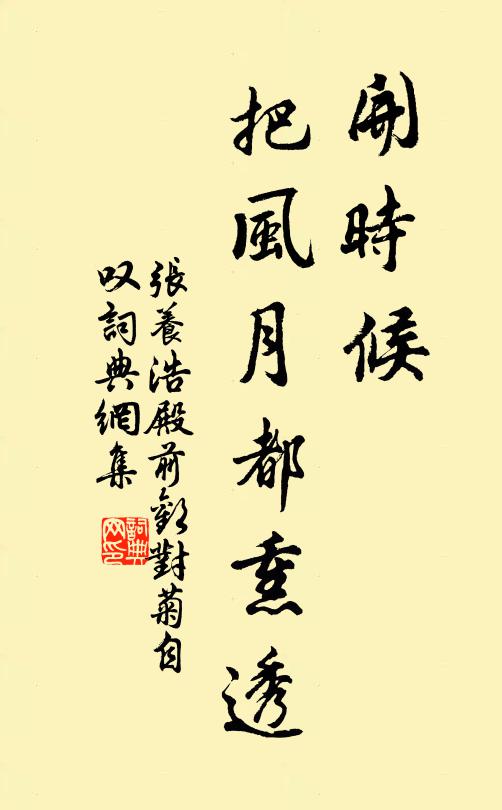 開時候
把風月都熏透
張養浩殿前歡對菊自
叹詞典網集
詞典
网印